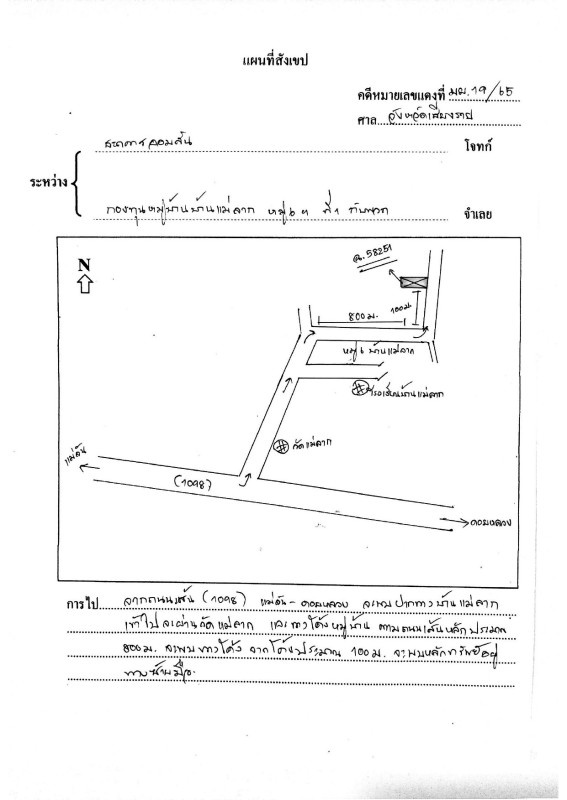 แผนที่สังเขป
คดีหมายเลขแดงที่ มผ.19/65
ศาล จังหวัดเชียงราย
ธนาคารออมสิน โจทก์
ระหว่าง
กองทุนหมู่บ้านบ้านแม่ลาก หมู่ ที่ 1 กับพวก จำเลย
N
ฉ.58251
100ม.
800ม.
หมู่บ้านแม่ลาก
โรงเรียนบ้านแม่ลาก
วัดแม่ลาก
แม่ฉัน
(1098)
ดอยหลวง
การไป จากถนนเส้น (1098) แม่ฉัน - ดอยหลวง จะพบปากทางบ้านแม่ลาก
เข้าไปจะผ่านวัดแม่ลาก และทางโค้งหมู่บ้าน ตามถนนเส้นหลักประมาณ
800ม. จะพบทางโค้ง จากโค้งประมาณ 100ม. จะพบหลักทรัพย์อยู่
ทางซ้ายมือ.